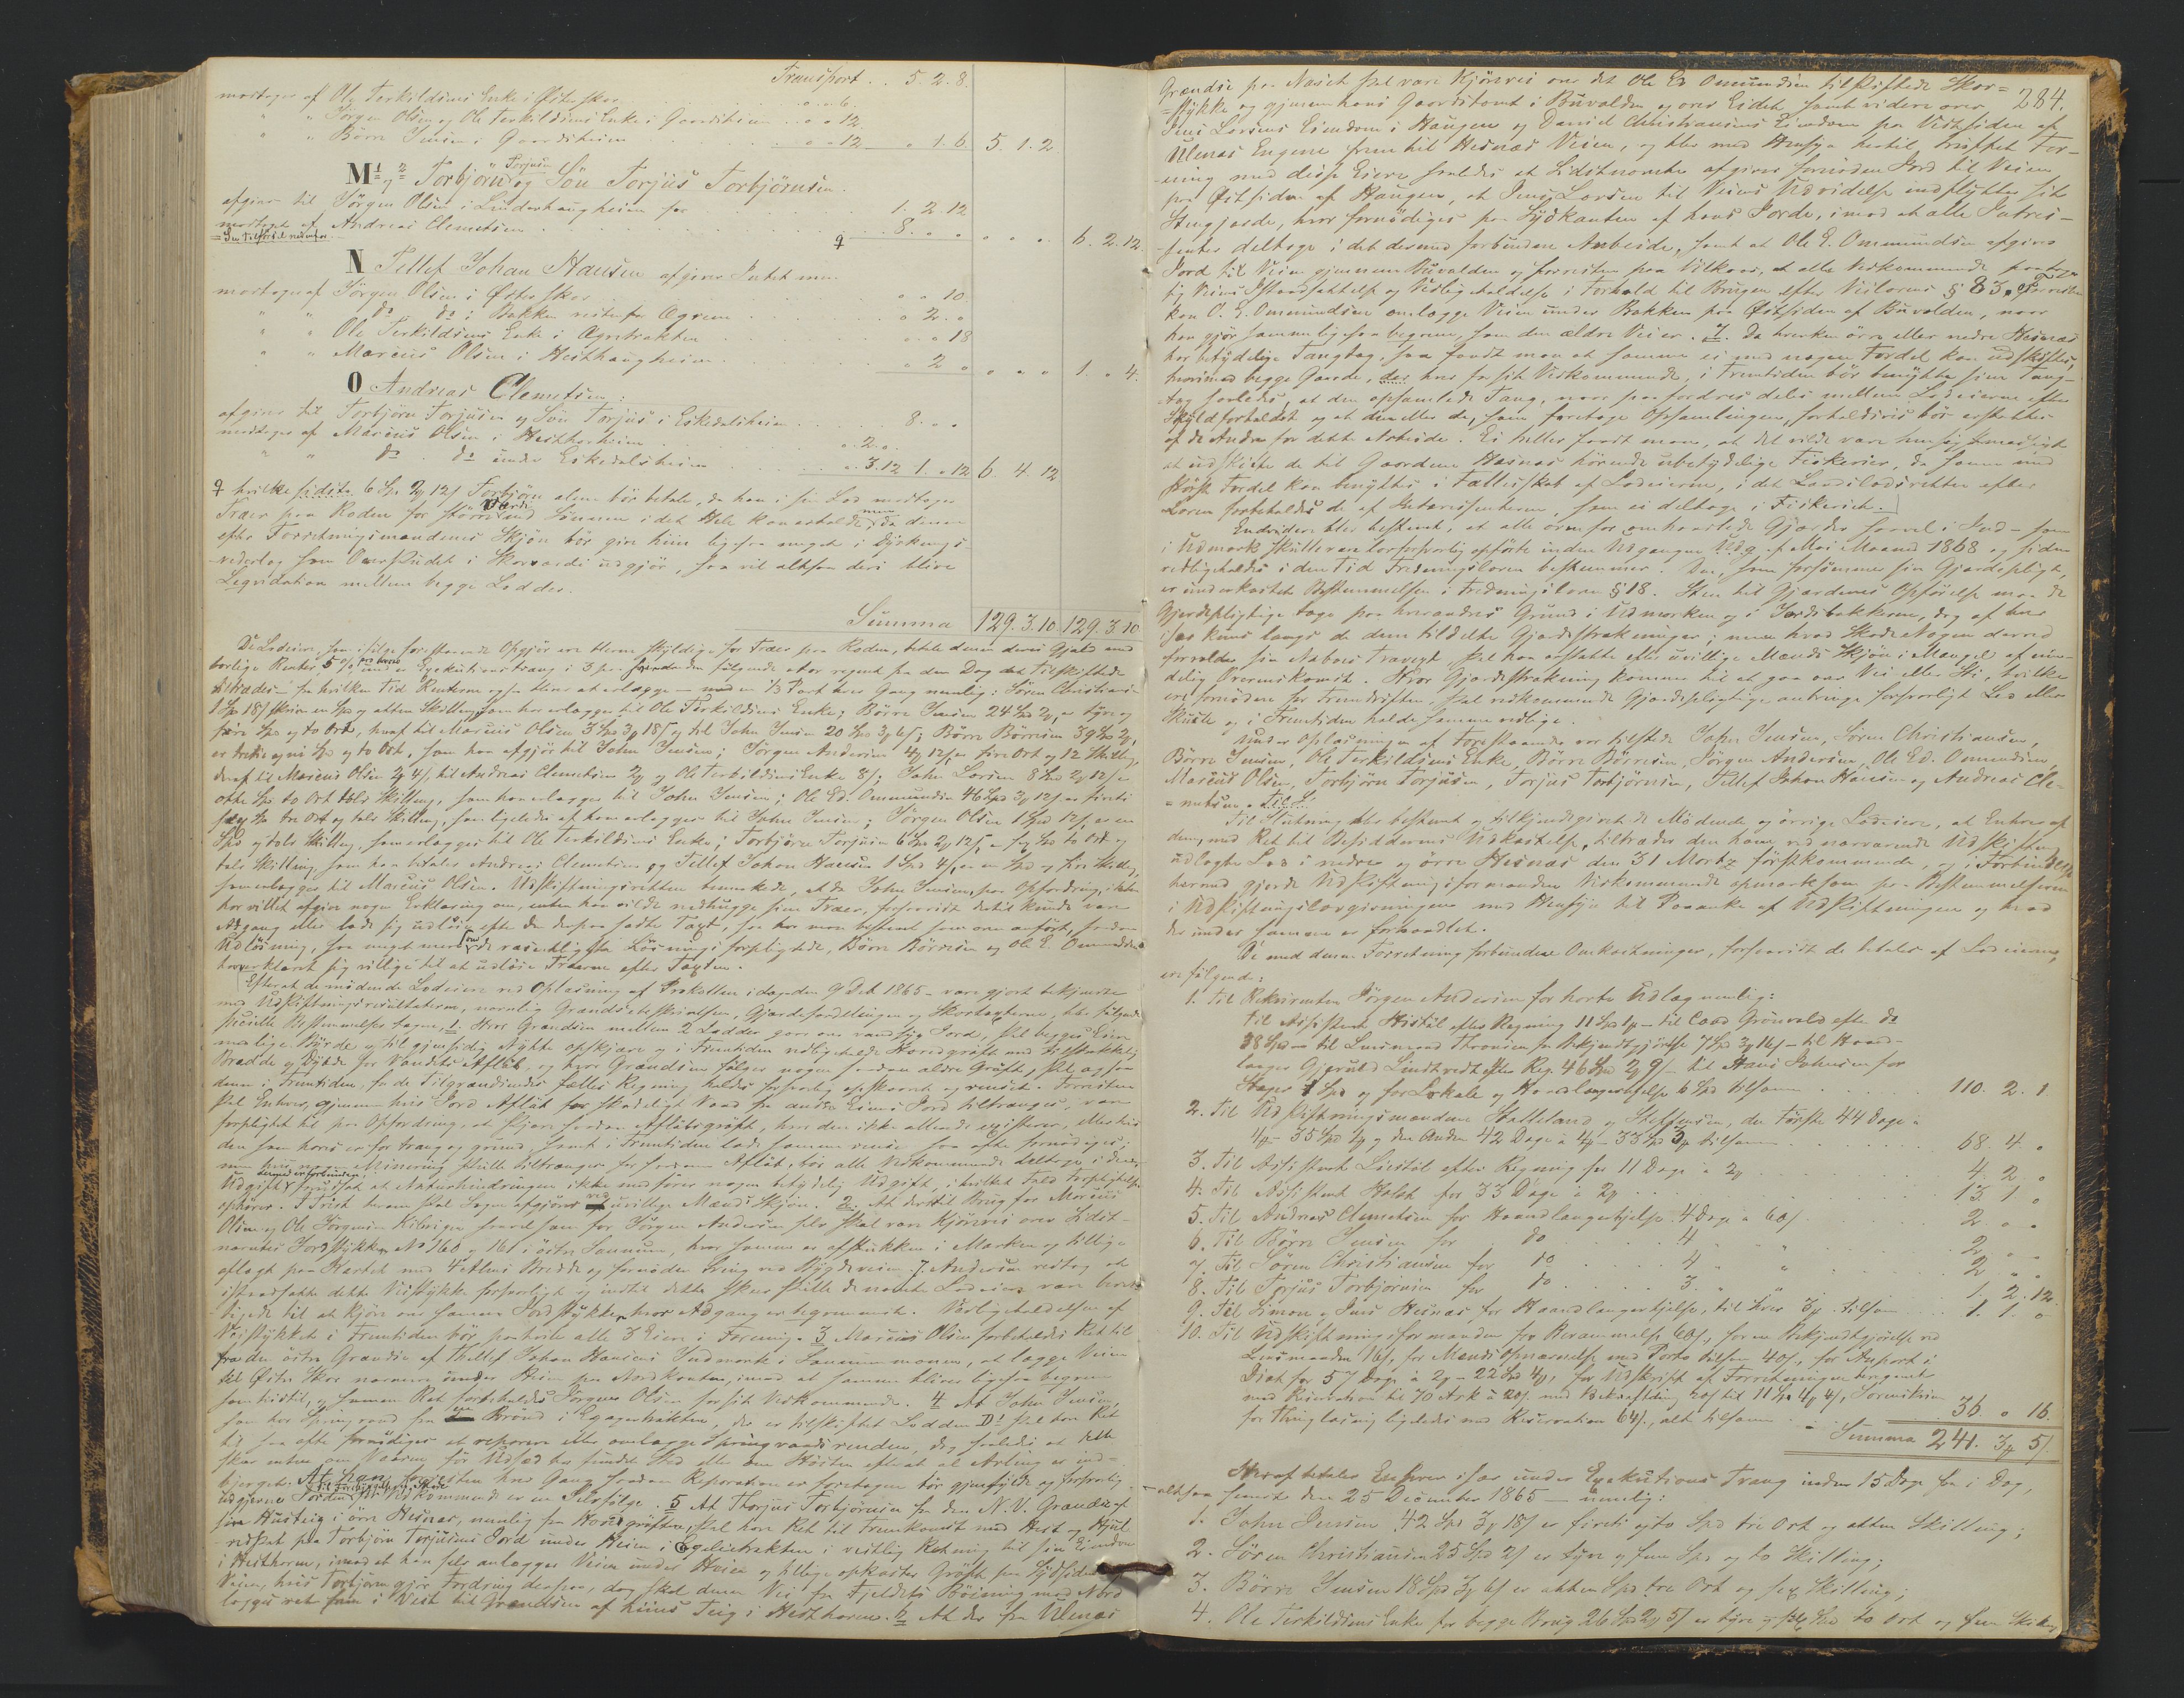 Transport . . 5. 2. 8.
modtager af Ole Terkildsens Enke i Østerskor . . . " . " . 6.
" " Jörgen Olsen og Ole Terkildsens Enke i Gaardsheien . . " . " 12
" " Börre Jensen i Gaardsheien . . . " . " 12 " 1. 6. 5. 1. 2.
M 1 og 2 Torbjörn Torjusen og Sön Torjus Torbjörnsen.
afgiver til Jörgen Olsen i Linderhaugheien for . . . 1. 2. 12
modtaget af Andreas Clemetsen . . . 8. " " " " " 6. 2. 12.
N Tellef Johan Hansen afgiver Intet men
modtager af Jörgen Olsen i Østerskor . . . " " 10.
" " do do i Bakken nedenfor Ageren . . . " 2. "
" " Ole Terkildsens Enke i Agertrakten . . . " " 18
" " Marcus Olsen i Hesthaugheien . . . " 2 " " " " 1. " 4.
O Andreas Clemetsen:
afgiver til Torbjörn Torjusen og Sön Torjus i Eskedalsheien . . . 8. " "
modtager af Marcus Olsen i Hesthorheien . . . " 2. "
" " do . do under Eskedalsheien . . . " 3. 12 1. " 12 6. 4. 12
hvilke sidste 6 Spd 2 12 Torbjörn alene bör betale, da han i sin Lod modtager
Træer paa Roden for större Værdi end Sönnen i det Hele kan erholde, men da denne
efter Forretningsmændenes Skjön bör give ham ligesaa meget i Dyrknings-
vederlag som Overskudet i Skovværdi udgjör, saa vil altsaa deri blive
Leqvidation mellem begge Lodder.
Summa 129. 3. 10. 129. 3. 10
De Lodeiere, som ifölge forestaaende Opgjör ere blevne skyldige for Træer paa Roden, betale denne deres Gjæld med
lovlige Renter, 5 % pro anno under Exekutionstvang i 3 paa hinanden fölgende Aar regnet fra den Dag det Tilskiftede
tiltrædes – fra hvilken Tid Renterne ogsaa blive at erlægge – med en 1/3 Part hver Gang nemlig: Sören Christiansen
1 Spd 18 skriver en Spd og atten Skilling, som han erlægger til Ole Terkildsens Enke; Börre Jensen 24 Spd 2, er tyve og
fire Spd og to Ort, hvoraf til Marcus Olsen 3 Spd 3 18 og til John Jensen 20 Spd 3 6; Börre Börresen 39 Spd 2,
er tredive og ni Spd og to Ort, som han afgjör til John Jensen; Jörgen Andersen 4 12, er fire Ort og 12 Skilling,
deraf til Marcus Olsen 2 4, til Andreas Clemetsen 2 og Ole Terkildsens Enke 8; John Larsen 8 Spd 2 12 er
otte Spd to Ort tolv Skilling, som han erlægger til John Jensen; Ole Ed. Ommundsen 46 Spd 3 12 er firti
sex Spd tre Ort og tolv Skilling, som ligeledes af ham erlægges til John Jensen; Jörgen Olsen 1 Spd 12, er en
Spd og tolv Skilling, som erlægges til Ole Terkildsens Enke; Torbjörn Torjusen 6 Spd 2 12, er sex Spd to Ort og
tolv Skilling, som han betaler Andreas Clemetsen og Tellef Johan Hansen 1 Spd 4, er en Spd og fire Skilling,
som erlægges til Marcus Olsen. Udskiftningsretten bemærkede, at da John Jensen, paa Opfordring, ikke
har villet afgive nogen Erklæring om, enten han vilde nedhugge sine Træer, forsaavidt dertil kunde være
Adgang eller lade sig udlöse efter den derpaa satte Taxt, saa har man bestemt som oven anfört, saadan
Udlösning, saa meget mere som de væsentligste Lösningsforpligtede, Börre Börresen og Ole E. Ommundsen
have erklæret sig villige til at udlöse Træerne efter Taxten.
Efterat de mödende Lodeiere ved Oplæsning af Protokollen idag den 9 Dcb 1865 – vare gjort bekjendte
med Udskiftningsresultaterne, navnlig Grændsebeskrivelsen, Gjærdefordelingen og Skovtaxterne, blev fölgende
specielle Bestemmelser tagne, 1. Hvor Grændsen mellem 2 Lodder gaar over vandsyg Jord, skal begges Eiere
med lige Byrde og til gjensidig Nytte opskjære og i Fremtiden vedligeholde Hovedgröft med tilstrækkelig
Bredde og Dybde for Vandets Afløb, og hvor Grændsen fölger nogen saadan ældre Gröft, skal ogsaa
denne i Fremtiden, for de Tilgrændsendes fælles Regning holdes forsvarlig opskaaret og renset. Forresten
skal Enhver, gjennem hvis Jord Afløb for skadeligt Vand fra andre Eieres Jord tiltrænges, være
forpligtet til paa Opfordring, at skjære saadan Afløbsgröft, hvor den ikke allerede existerer, eller hvis
den som haves er for trang og grund, samt i Fremtiden lade samme rense saa ofte fornödiges;
men hvis nogen Minering skulle tiltrænges for saadant Afløb, bör alle Vedkommende deltage i den
Udgift dermed er forbunden, forudsat at Naturhindringen ikke medförer nogen betydelig Udgift, i hvilket Fald Forpligtelsen
ophörer. I Tvist herom skal Sagen afgjöres ved uvillige Mænds Skjön. 2. At dertil Brug for Marcus
Olsen og Ole Jörgensen Kilvigen saavel som for Jörgen Andersen selv skal være Kjörevei over Sidst-
nævntes Jordstykker No 160 og 161 i östre Sommen, hvor samme er afstukken i Marken og tillige
aflagt paa Kartet med 4 Alens Bredde og fornöden Sving ved Bygdeveien. J. Andersen vedtog at
istandsætte dette Veistykke forsvarligt og indtil dette sker skulle de nævnte Lodeiere være beret-
tigede til at kjöre over samme Jordstykker, hvor Adgang er begvemmest. Vedligeholdelsen af
Veistykket i Fremtiden bör paahvile alle 3 Eiere i Forening. 3 Marcus Olsen forbeholdes Ret til
fra den östre Grændse af Thellef Johan Hansens Indmark i Sommemonen, at lægge Veien
til Østre Skor nærmere under Heien paa Nordkanten, imod at samme bliver ligesaa begvem
som hidtil, og samme Ret forbeholdes Jörgen Olsen for sit Vedkommende. 4 At John Jensen,
som har Springvand fra en Brönd i Egagertrakten, der er tilskiftet Lodden D1 skal have Ret
til saa ofte fornödiges at reparere eller omlægge Springvandsrenden, dog saaledes at dette
sker enten om Vaaren för Udsæd har fundet Sted eller om Hösten efterat al Avling er ind-
bjerget. At han forresten hver Gang saadan Reparation er foretagen bör gjenfylde og forsvarlig
udjævne Jorden til Forebyggelse af Skade for Vedkommende er en Selvfölge. 5 At Thorjus Torbjörnsen fra den N.V. Grændse af
sin Husteig i övre Hesnæs, nemlig fra Hovedgröften, skal have Ret til Fremkomst med Hest og Hjul-
redskab paa Torbjörn Torjusens Jord under Heien i Ogeliertrakten i vestlig Retning til sin Eiendom
i Hesthoven, imod at han selv anlægger Veien under Heien og tillige opkaster Gröft paa Sydsiden af
Veien, hvis Torbjörn gjör Fordring derpaa, dog skal denne Vei fra Fjeldets Böining mod Nord
lægges ret frem i Vest til Grændsen af hiins Teig i Hesthoven. 6 At der fra Ulenæs
284.
Grændse paa Næset skal være Kjörevei over det Ole Ed Ommundsen tilskiftede Skov=
=stykke og gjennem hans Gaardstomt i Buvolden og over Eidet, samt videre over
Jens Larsens Eiendom i Haugen og Daniel Christiansens Eiendom paa Vestsiden af
Ulenæs Engene frem til Hesnæs Veien, og blev med Hensyn hertil truffet For-
-ening med disse Eiere saaledes at Sidstnævnte afgiver fornöden Jord til Veien
paa Østsiden af Haugen, at Jens Larsen til Veiens Udvidelse indflytter sit
Stengjerde, hvor fornödiges paa Sydkanten af hans Jorde, imod at alle Intres-
-senter deltage i det dermed forbundne Arbeide, samt at Ole E. Ommundsen afgiver
Jord til Veien gjennem Buvolden og forresten paa Vilkaar, at alle Vedkommende paatage
sig Veiens Istandsættelse og Vedligeholdelse i Forhold til Brugen efter Veilovens § 83. Forresten
kan O. E. Ommundsen omlægge Veien under Bakken paa Østsiden af Buvolden, naar
han gjör samme ligesaa begvem, som den ældre Vei er. 7. Da hverken övre eller nedre Hesnæs
har betydelige Tangtag, saa fandt man at samme ei med nogen Fordel kan udskiftes,
hvorimod begge Gaarde, der hver for sit Vedkommende, i Fremtiden bör benytte sine Tang-
-tag saaledes, at den opsamlede Tang, naar paafordres deles mellem Lodeierne efter
Skyldforholdet og at den eller de, som foretage Opsamlingen, forholdsvis bör erstattes
af de Andre for dette Arbeide. Ei heller fandt man, at det vilde være hensigtsmæssigt
at udskifte de til Gaardene Hesnæs hörende ubetydelige Fiskerier, da samme med
störst Fordel kan benyttes i Fællesskab af Lodeierne, idet Landslodsretten efter
Loven forbeholdes de af Interessenterne, som ei deltage i Fiskeriet.
Endvidere blev bestemt, at alle ovenfor omhandlede Gjærder saavel i Ind- som
i Udmark skulle være lovforsvarlig opförte inden Udgangen af Mai Maaned 1868 og siden
vedligeholdes i den Tid Fredningsloven bestemmer. Den, som forsömmer sin Gjærdepligt,
er underkastet Bestemmelsen i Fredningsloven § 18. Sten til Gjærdernes Opförelse maa de
Gjærdepligtige tage paa hverandres Grund i Udmarken og i Jordsbakkerne, dog af hver
især kuns langs de dem tildelte Gjærdestrækninger; men hvad Skade Nogen derved
forvolder sin Nabos Trævext, skal han erstatte efter uvillige Mænds Skjön i Mangel af min-
delig Overenskomst. Hvor Gjærdestrækning kommer til at gaa over Vei eller Sti, hvilke
ere fornödne for Fremdriften, skal vedkommende Gjærdepligtige anbringe forsvarligt Led eller
Skuele og i Fremtiden holde samme vedlige.
Under Oplæsningen af Forestaaende var tilstede John Jensen, Sören Christiansen,
Börre Jensen, Ole Terkildsens Enke, Börre Börresen, Jörgen Andersen, Ole Ed. Ommundsen,
Marcus Olsen, Torbjörn Torjusen, Torjus Torbjörnsen, Tellef Johan Hansen og Andreas Cle-
=metsen.
Til Slutning blev bestemt og tilkjendegivet de Mödende og övrige Lodeiere, at Enhver af
dem, med Ret til Besiddernes Udkastelse, tiltræder den ham ved nærværende Udskiftning
udlagte Lod i nedre og övre Hesnæs den 31 Martz förstkommende, og i Forbindelse
hermed gjorde Udskiftningsformanden Vedkommende opmærksom paa Bestemmelserne
i Udskiftningslovgivningen med Hensyn til Paaanke af Udskiftningen og hvad
der under samme er forhandlet.
De med denne Forretning forbundne Omkostninger, forsaavidt de betales af Lodeierne,
ere fölgende:
1. Til Rekvirenten Jörgen Andersen for havte Udlæg nemlig:
til Assistent Listöl efter Regning 11 Spd 1 – til Cand Grönvold efter do
38 Spd – til Lensmand Thronsen for Bekjendtgjörelse 7 Spd 3 16 – til Haand-
langer Gjeruld Lindtvedt efter Reg. 46 Spd 2 9 – til Hans Johnsen for
Stager 1 Spd og for Lokale og Haandlangerhjelp 6 Spd tilsammen . . . 110. 2. 1
2. Til Udskiftningsmændene Hatteland og Steffensen, den Förste 44 Dage a
4 – 35 Spd 1 og den Anden 42 Dage a 4 – 33 Spd 3 tilsammen . . . 68. 4. "
3. Til Assistent Listöl efter Regning for 11 Dage a 2 . . . 4. 2. "
4. Til Assistent Holst for 33 Dage a 2 . . . 13. 1. "
5. Til Andreas Clemetsen for Haandlangerhjelp 4 Dage a 60 . . . 2. " "
6. Til Börre Jensen for do . . . 4 " " . . . 2. " "
7. Til Sören Christiansen for do . . . 4 " " . . . 2 " "
8. Til Torjus Torbjörnsen for do . . . 3. " " . . . 1. 2. 12
9. Til Simon og Jens Hesnæs for Haandlangerhjelp, til hver 3 tilsammen . . . 1. 1. "
10. Til Udskiftningsformanden for Berammelse 60, for en Bekjendtgjörelse ved
Lensmanden 16, for Mænds Opnævnelse med Porto tilsammen 40, for Anport i
Diæt for 57 Dage a 2 – 22 Spd 4, for Udskrift af Forretningen beregnet
med Reservation til 70 Ark a 20 med Bekræftelse 20 til 11 Spd 4 4, Sorenskriveren
for Thinglæsning ligeledes med Reservation 64, alt tilsammen . . . 36. " 16.
Summa 241. 3 5
Heraf betaler Enhver især under Exekutions Tvang inden 15 Dage fra i Dag,
– altsaa senest den 25 December 1865 – nemlig:
1. John Jensen 42 Spd 3 18 er firti og to Spd tre Ort og atten Skilling;
2. Sören Christiansen 25 Spd 2 er tyve og fem Spd og to Skilling;
3. Börre Jensen 18 Spd 3 6 er atten Spd tre Ort og sex Skilling;
4. Ole Terkildsens Enke for begge Brug 26 Spd 2 5 er tyve og sex Spd to Ort og fem Skilling